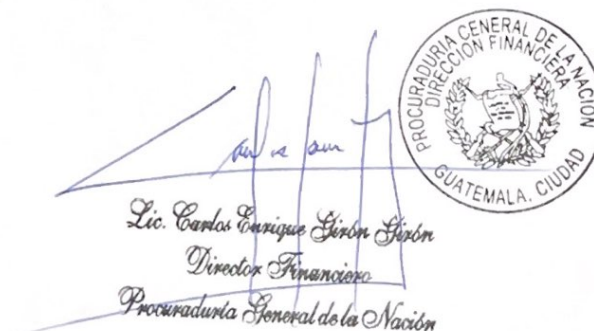 PROCURADURIA GENERAL DE LA NACIÓN
DIRECCIÓN FINANCIERA
GUATEMALA, CIUDAD
Lic. Carlos Enrique Girón Girón
Director Financiero
Procuraduría General de la Nación